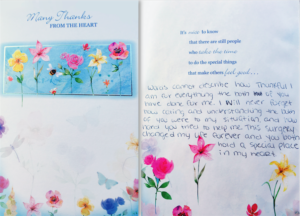 Many Thanks
FROM THE HEART
It's nice to know
that there are still people
who take the time
to do the special things
that make others feel good...
Words cannot describe how thankful I
am for everything the both of you
have done for me. I will never forget
how caring and understanding the both
of you were to my situation and how
hard you tried to help me. This surgery
changed my life forever and you both
hold a special place
in my heart.